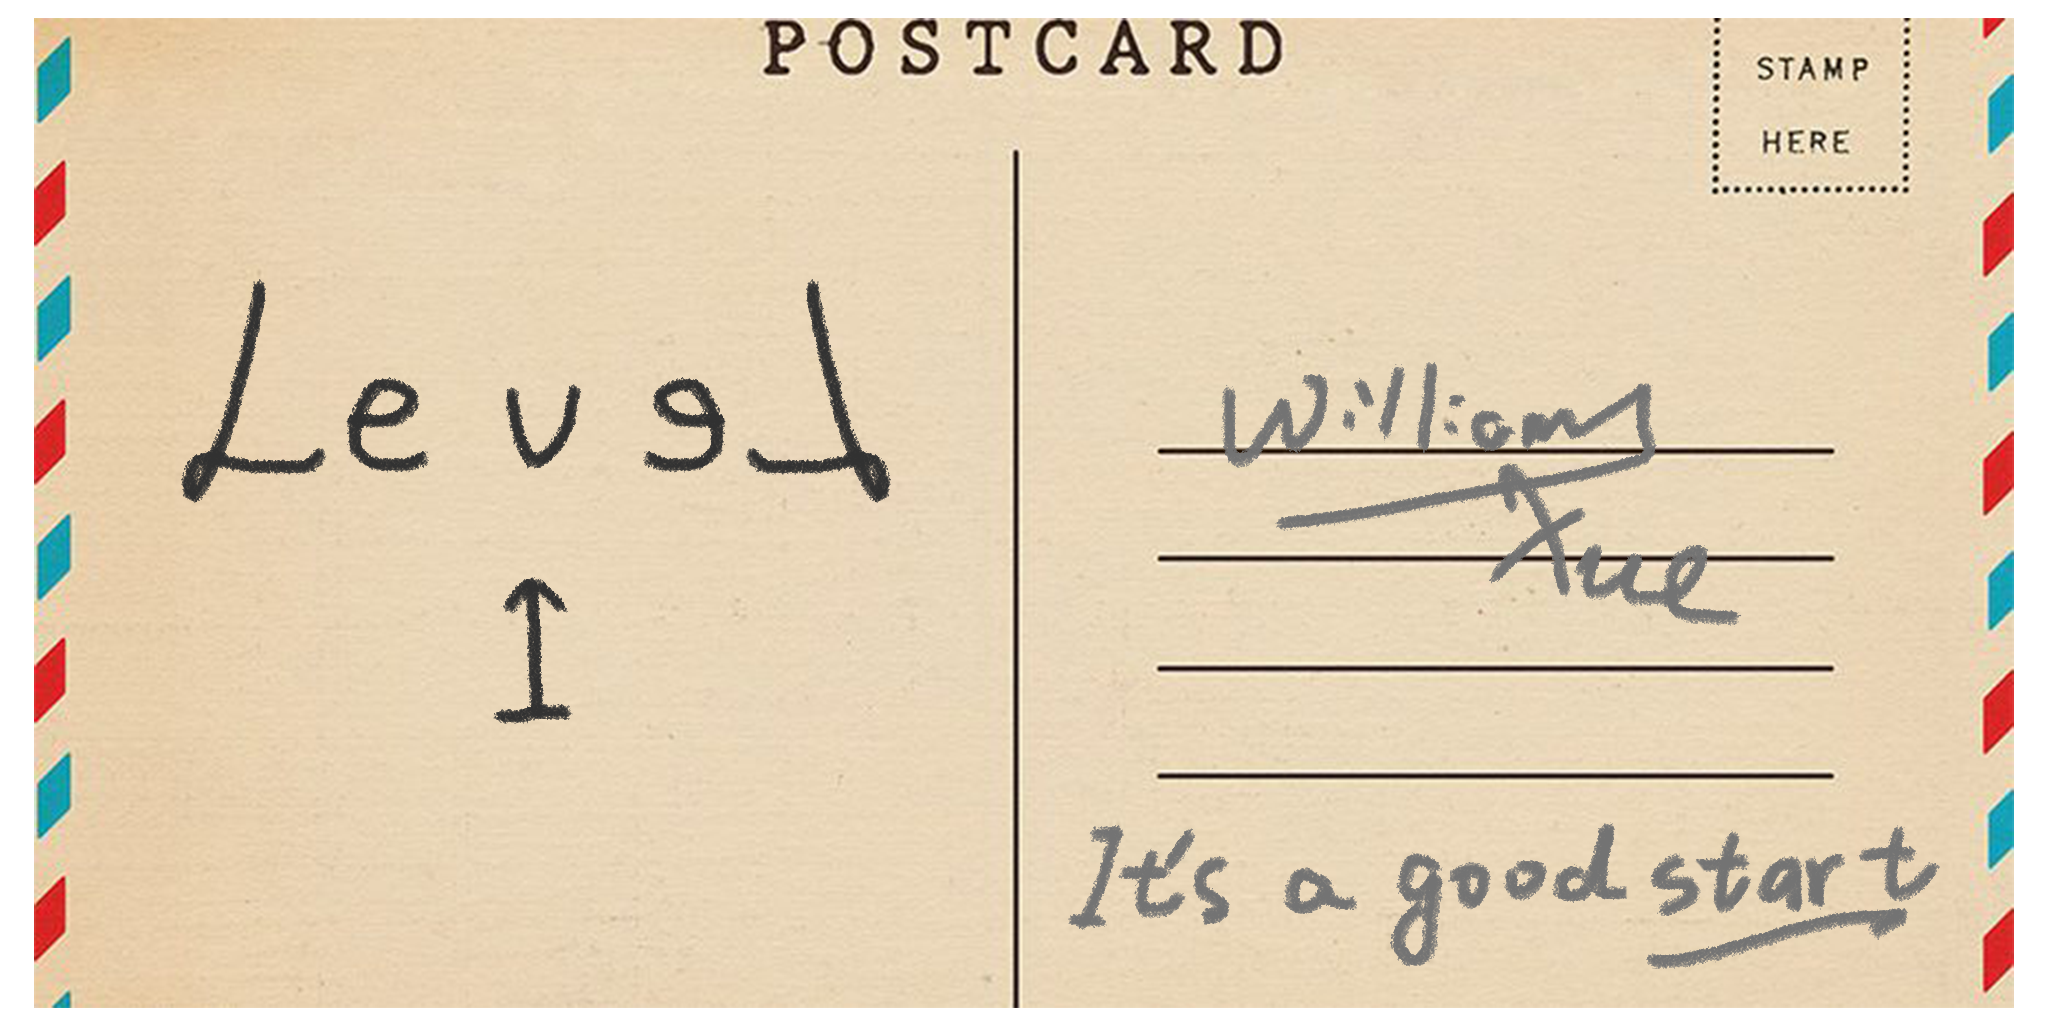 POSTCARD
STAMP
HERE
Level
I
Williams
Xue
It's a good start